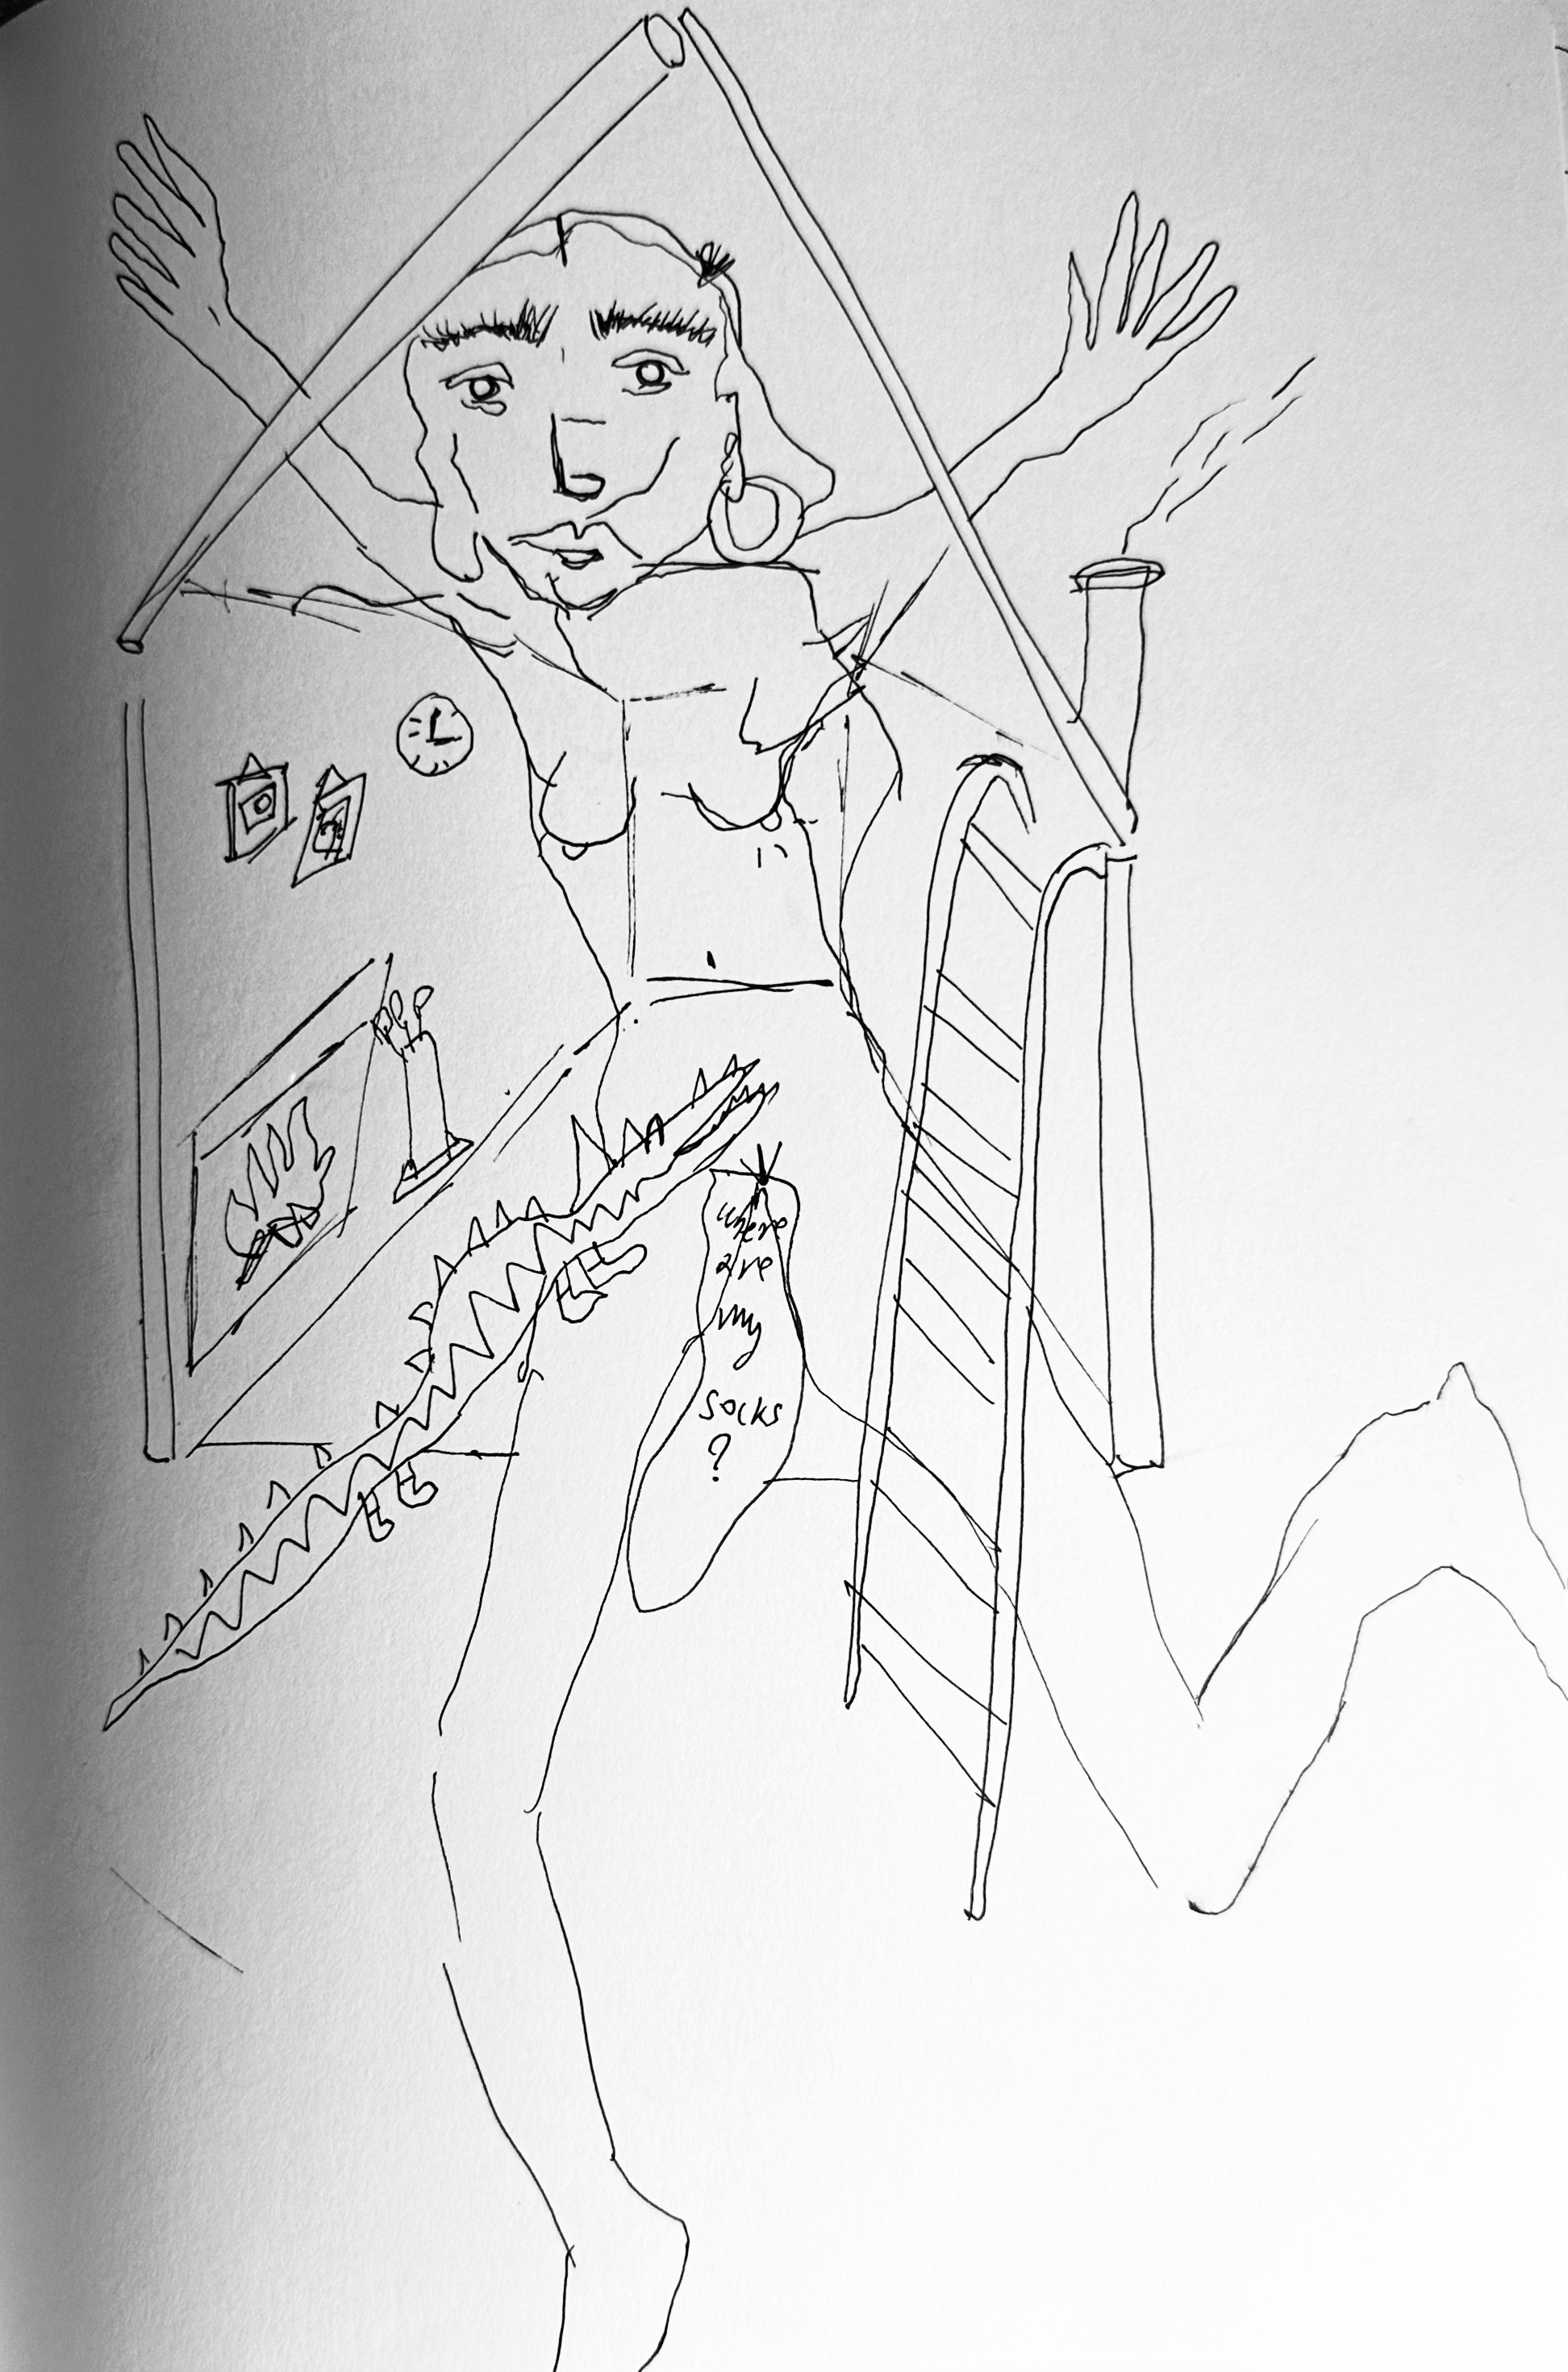 where
are
my
socks
?